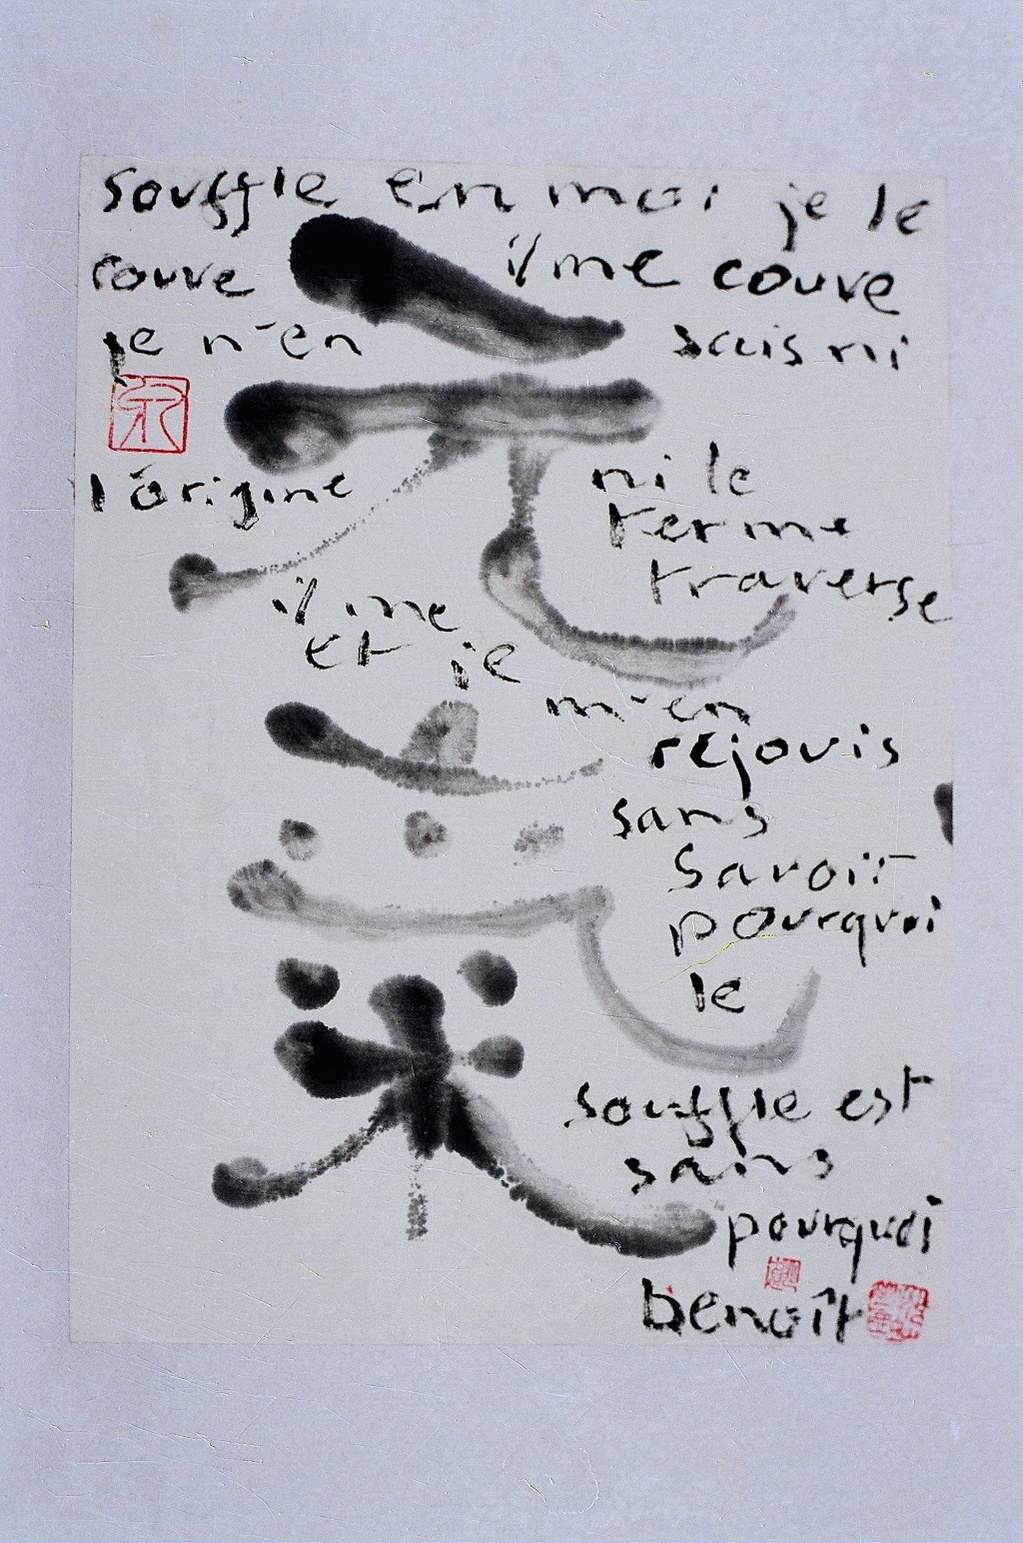 souffle en moi je le
couve il me couve
je n'en sais ni
l'origine ni le
terme
il me traverse
et je
m'en
rejouis
sans
savoir
pourquoi
le
souffle est
sans
pourquoi
benoît
元
氣